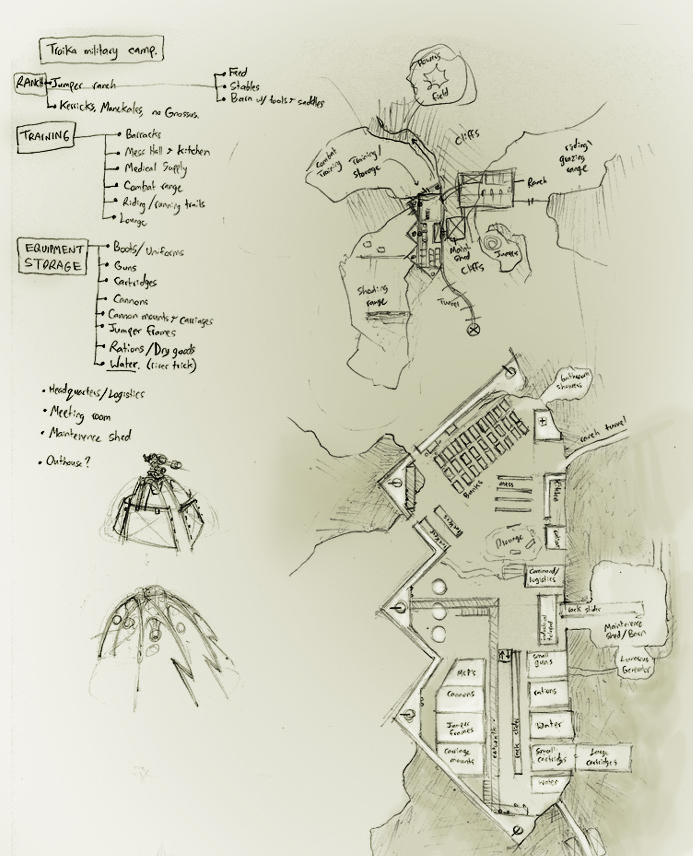 Troika military camp.
RANCH
Jumper ranch
Feed
Stables
Barn w/ tools + saddles
Kerricks, Manekales, no Grossus.
TRAINING
Barracks
Mess Hall + kitchen
Medical Supply
Combat range
Riding/running trails
Lounge
EQUIPMENT
STORAGE
Boots/Uniforms
Guns
Cartridges
Cannons
Cannon mounts + carriages
Jumper frames
Rations/Dry goods
Water. (river trick)
Headquarters/Logistics
Meeting room
Maintenence shed
Outhouse?
Flowers
Field
Cliffs
Combat
Training
Training/
storage
riding\
grazing
range
Ranch
Maint
shed
Cliffs
Jumper
Shooting
range
Tunnel
bathroom
showers
ranch tunnel
Bunks
Mess
Kitchen
Lounge
Command/
logistics
rack slider
Maintenence
shed/Barn
Generator
small
guns
MCP's
Cannons
rations
Jumper
frames
Water
Carriage
mounts
rack slider
Small
cartridges
Large
cartridges
Water